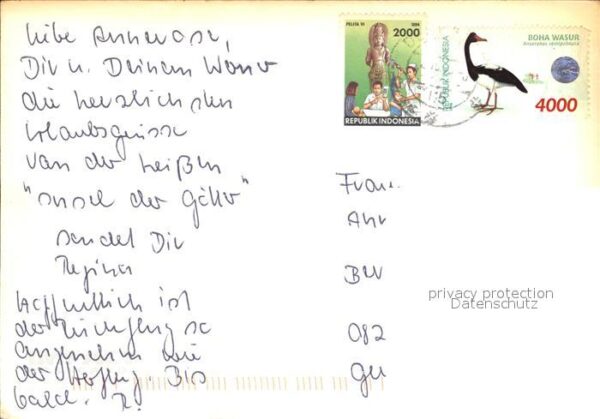 Liebe Annerose,
Dir u. Deinem
die herzlichsten
Urlaubsgrüsse
von der heißen
"Insel der Götter"
sendet Dir
Regina
Hoffentlich ist
der Rückflug so
angenehm wie
der Hinflug. Bis
bald. R.
PELITA VI
2000
REPUBLIK INDONESIA
REPUBLIK INDONESIA
BOHA WASUR
Anseranas semipalmata
4000
Frau
082
privacy protection
Datenschutz